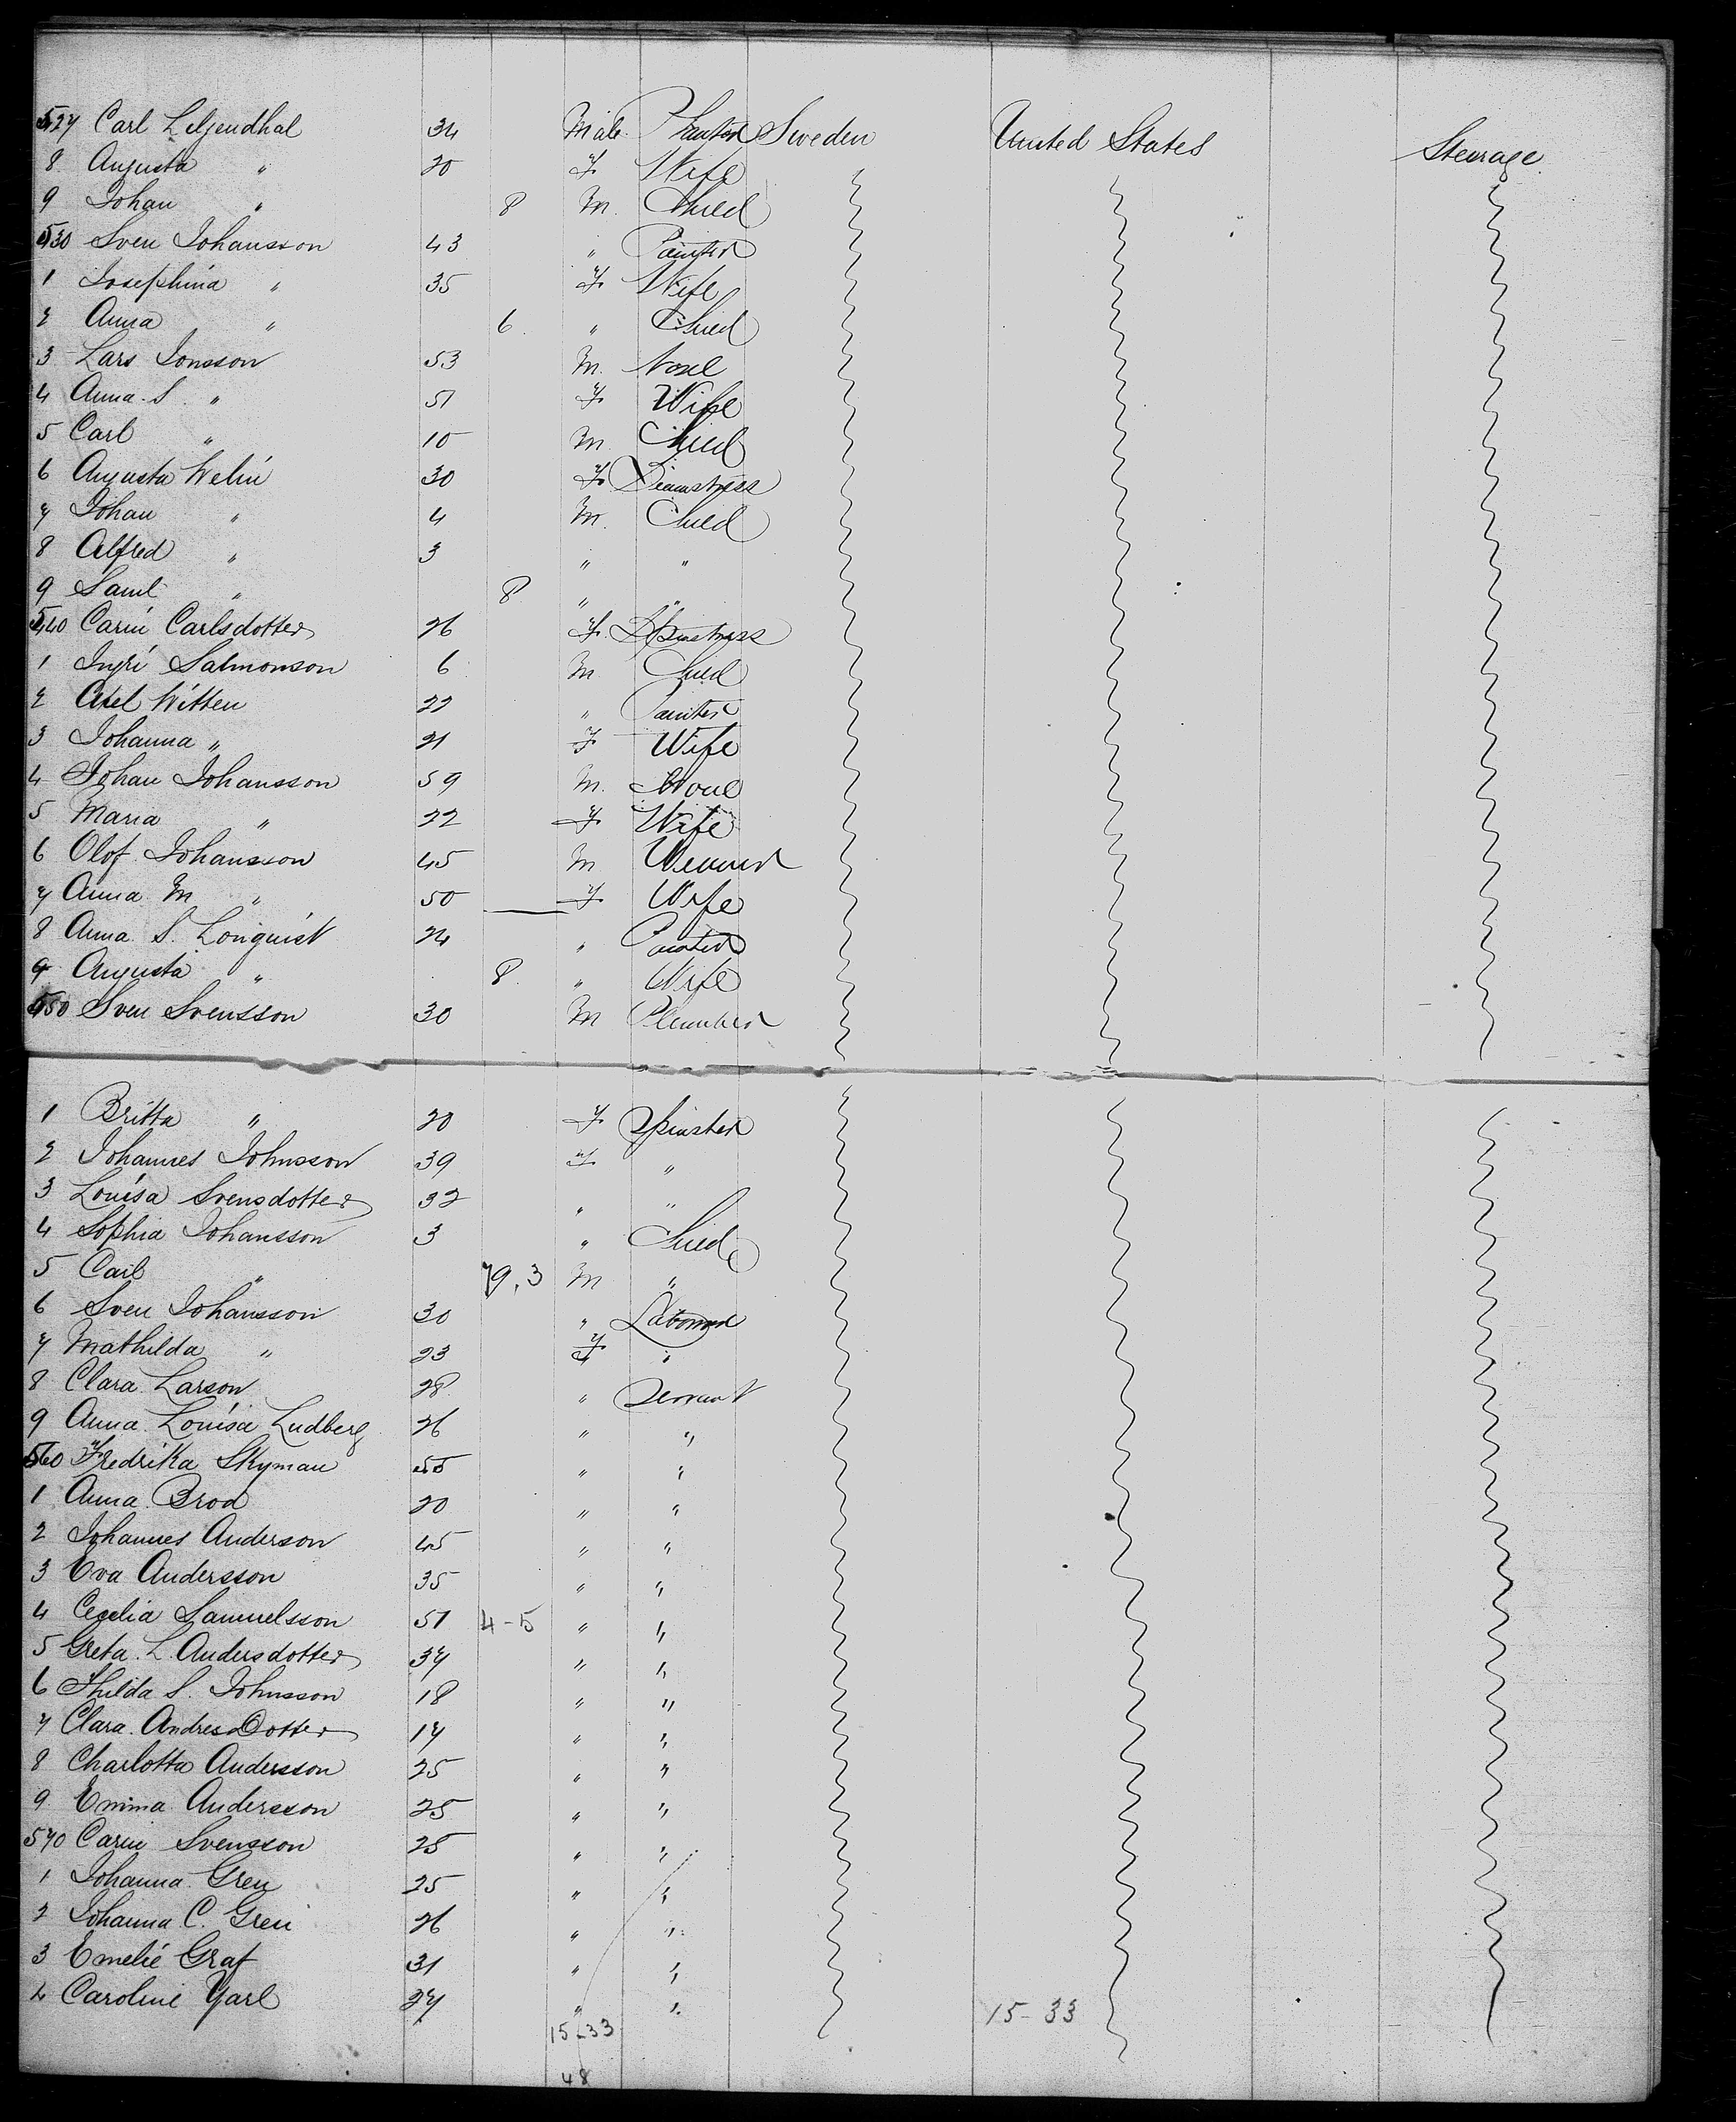 527 Carl Liljendhal 34 Male Painter Sweden United States Steerage
8 Augusta " 20 F. Wife
9 Johan " 8 M. Child
530 Sven Johansson 43 " Painter
1 Josephina " 35 F. Wife
2 Anna " 6. " Child
3 Lars Jonsson 53 M. None
4 Anna. S. " 51 F. Wife
5 Carl " 10 M Child
6 Augusta Welin 30 F. Seamstress
7 Johan " 4 M. Child
8 Alfred " 3 " "
9 Saml " 8 " "
540 Carin Carlsdotter 26 F.
1 Ingri Salmonson 6 M Child
2 Axel Witten 22 " Painter
3 Johanna " 21 F Wife
4 Johan Johansson 59 M. None
5 Maria " 22 F. Wife
6 Olof Johansson 45 M Weaver
7 Anna M " 50 F. Wife
8 Anna S. Lonquist 24 " Painter
9 Augusta " 8. " Wife
550 Sven Svensson 30 M Plumber
1 Britta " 20 F. Spinster
2 Johannes Johnsson 39 F. "
3 Louisa Svensdotter 32 " "
4 Sophia Johansson 3 " Child
5 Carl " 79.3 M "
6 Sven Johansson 30 " Laborer
7 Mathilda " 23 F "
8 Clara Larson 28 " Servant
9 Anna Louisa Ludberg 26 " "
560 Fredrika Skyman 55 " "
1 Anna Brod 20 " "
2 Johannes Anderson 45 " "
3 Eva Andersson 35 " "
4 Cecelia Samuelsson 51 4-5 " "
5 Greta L. Andersdotter 37 " "
6 Thilda S. Johnsson 18 " "
7 Clara Andres Dotter 17 " "
8 Charlotta Andersson 25 " "
9 Emma Andersson 25 " "
570 Carin Svensson 28 " "
1 Johanna Gren 25 " "
2 Johanna C. Gren 26 " "
3 Emelie Graf 31 " "
4 Caroline Yarl 27 " "
15-33 15-33
48